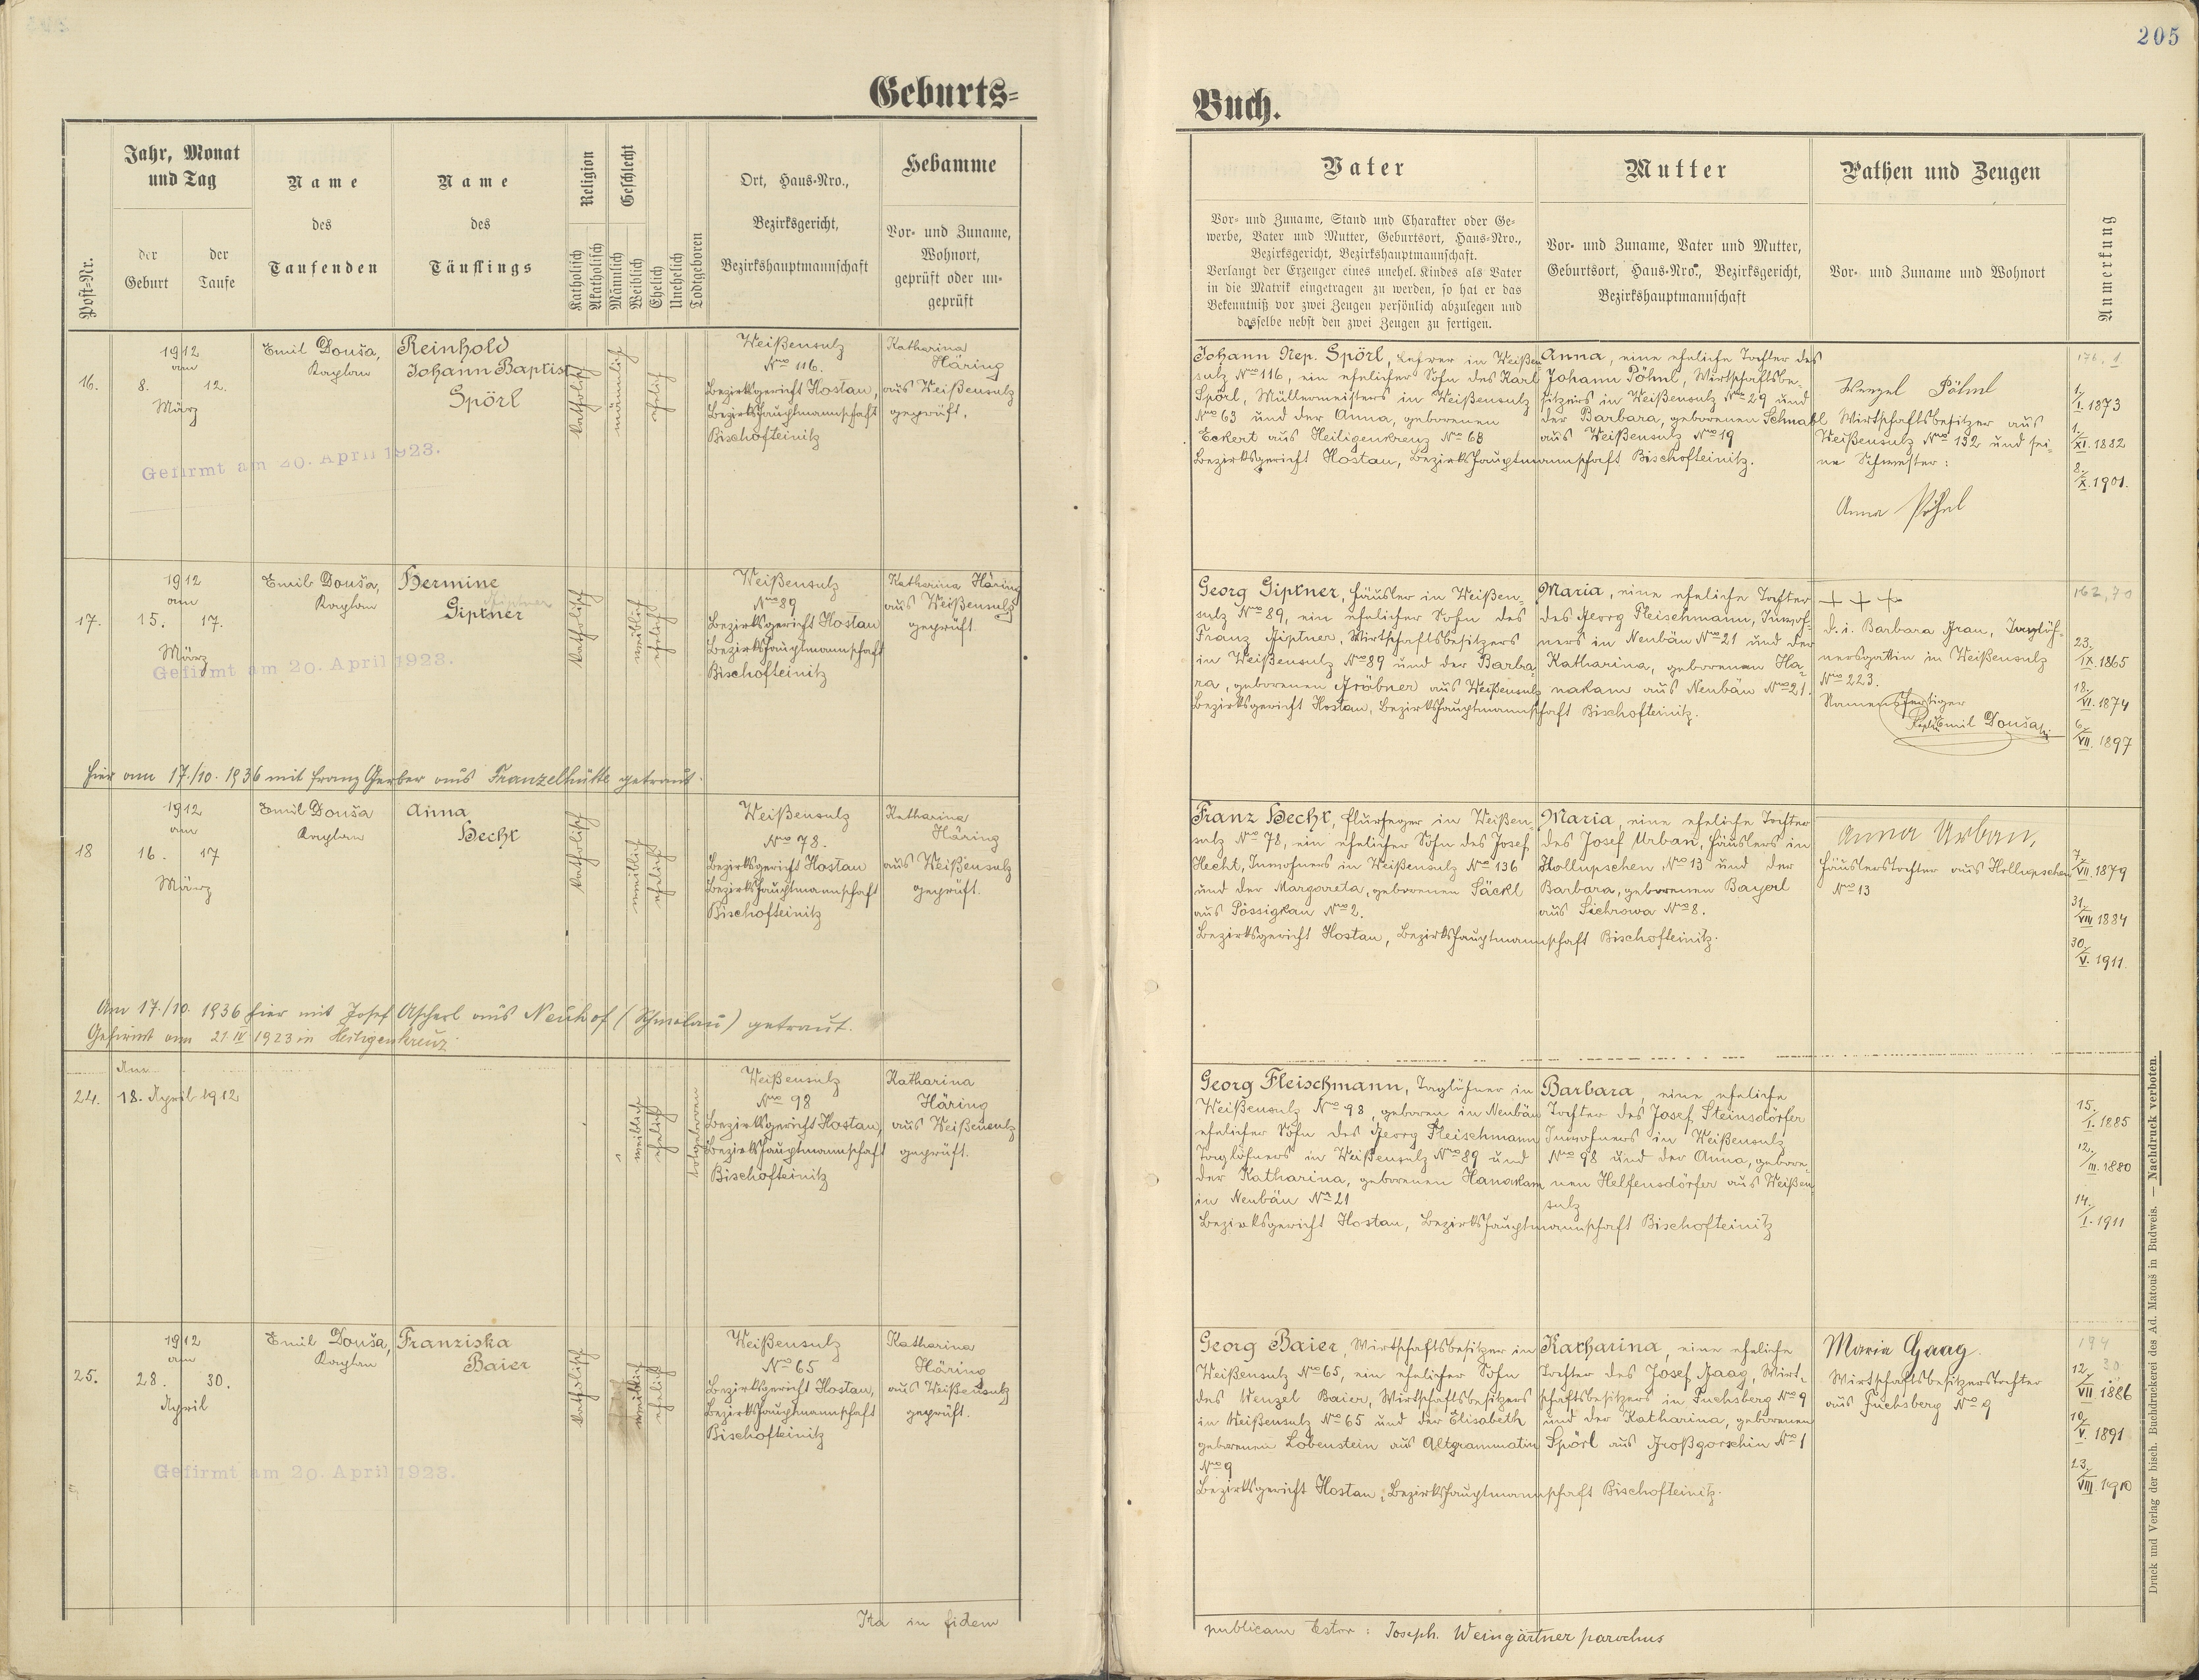 205
Geburts-
Buch.
Post-Nr.
Jahr, Monat
und Tag
der
Geburt
der
Taufe
Name
des
Taufenden
Name
des
Täuflings
Religion
Katholisch
Akatholisch
Geschlecht
Männlich
Weiblich
Ehelich
Unehelich
Todtgeboren
Ort, Haus-Nro.,
Bezirksgericht,
Bezirkshauptmannschaft
Hebamme
Vor- und Zuname,
Wohnort,
geprüft oder un-
geprüft
Vater
Vor- und Zuname, Stand und Charakter oder Ge-
werbe, Vater und Mutter, Geburtsort, Haus-Nro.,
Bezirksgericht, Bezirkshauptmannschaft.
Verlangt der Erzeuger eines unehel. Kindes als Vater
in die Matrik eingetragen zu werden, so hat er das
Bekenntniß vor zwei Zeugen persönlich abzulegen und
dasselbe nebst den zwei Zeugen zu fertigen.
Mutter
Vor- und Zuname, Vater und Mutter,
Geburtsort, Haus-Nro., Bezirksgericht,
Bezirkshauptmannschaft
Pathen und Zeugen
Vor- und Zuname und Wohnort
Anmerkung
16.
1912
am
8. 12.
März
Emil Douša,
Kaplan
Reinhold
Johann Baptist
Spörl
katholisch
männlich
ehelich
Weißensulz
Nro 116.
Bezirksgericht Hostau,
Bezirkshauptmannschaft
Bischofteinitz
Katharina
Häring
aus Weißensulz
geprüft.
Gefirmt am 20. April 1923.
Johann Nep. Spörl, Lehrer in Weißen-
sulz Nro 116, ein ehelicher Sohn des Karl
Spörl, Müllermeisters in Weißensulz
Nro 63 und der Anna, geborenen
Eckert aus Heiligenkreuz Nro 68
Bezirksgericht Hostau, Bezirkshauptmannschaft Bischofteinitz.
Anna, eine eheliche Tochter des
Johann Pöhnl, Wirtschaftsbe-
sitzers in Weißensulz Nro 29 und
der Barbara, geborenen Schnabl
aus Weißensulz Nro 19
Wenzel Pöhnl
Wirtschaftsbesitzer aus
Weißensulz Nro 132 und sei-
ne Schwester:
Anna Pöhnl
176, 1
1./I. 1873
1./XI. 1882
8./X. 1901.
17.
1912
am
15. 17.
März
Emil Douša,
Kaplan
Hermine
Giptner
katholisch
weiblich
ehelich
Weißensulz
Nro 89
Bezirksgericht Hostau
Bezirkshauptmannschaft
Bischofteinitz
Katharina Häring
aus Weißensulz
geprüft.
Gefirmt am 20. April 1923.
Hier am 17./10. 1936 mit Franz Gerber aus Franzelhütte getraut.
Georg Giptner, Häusler in Weißen-
sulz Nro 89, ein ehelicher Sohn des
Franz Giptner, Wirtschaftsbesitzers
in Weißensulz Nro 89 und der Barba-
ra, geborenen Gröbner aus Weißensulz
Bezirksgericht Hostau, Bezirkshauptmannschaft Bischofteinitz.
Maria, eine eheliche Tochter
des Georg Fleischmann, Inwoh-
ners in Neubäu Nro 21 und der
Katharina, geborenen Ha-
nakam aus Neubäu Nro 21.
+ + +
d. i. Barbara Grau, Taglöh-
nersgattin in Weißensulz
Nro 223.
Namensfertiger
Emil Douša
162, 70
23./IX. 1865
18./VI. 1874
6./VII. 1897
18
1912
am
16. 17
März
Emil Douša
Kaplan
Anna
Hecht
katholisch
weiblich
ehelich
Weißensulz
Nro 78.
Bezirksgericht Hostau
Bezirkshauptmannschaft
Bischofteinitz
Katharina
Häring
aus Weißensulz
geprüft.
Am 17./10. 1936 hier mit Josef Ascherl aus Neuhof (Schmolau) getraut.
Gefirmt am 21. IV 1923 in Heiligenkreuz
Franz Hecht, Flurheger in Weißen-
sulz Nro 78, ein ehelicher Sohn des Josef
Hecht, Inwohners in Weißensulz Nro 136
und der Margareta, geborenen Säckl
aus Pössigkau Nro 2.
Bezirksgericht Hostau, Bezirkshauptmannschaft Bischofteinitz.
Maria, eine eheliche Tochter
des Josef Urban, Häuslers in
Hollupschen Nro 13 und der
Barbara, geborenen Bayerl
aus Sichrowa Nro 8.
Anna Urban,
Häuslerstochter aus Hollupschen
Nro 13
7./VII. 1879
31./VIII 1884
30./V. 1911.
24.
Am
18. April 1912
weiblich
ehelich
totgeboren
Weißensulz
Nro 98
Bezirksgericht Hostau,
Bezirkshauptmannschaft
Bischofteinitz
Katharina
Häring
aus Weißensulz
geprüft.
Georg Fleischmann, Taglöhner in
Weißensulz Nro 98, geboren in Neubäu
ehelicher Sohn des Georg Fleischmann
Taglöhners in Weißensulz Nro 89 und
der Katharina, geborenen Hanakam
in Neubäu Nro 21
Bezirksgericht Hostau, Bezirkshauptmannschaft Bischofteinitz
Barbara, eine eheliche
Tochter des Josef Steinsdörfer
Inwohners in Weißensulz
Nro 98 und der Anna, gebore-
nen Helfensdörfer aus Weißen-
sulz
15./I. 1885
12./III. 1880
14./I. 1911
25.
1912
am
28. 30.
April
Emil Douša,
Kaplan
Franziska
Baier
katholisch
weiblich
ehelich
Weißensulz
Nro 65
Bezirksgericht Hostau,
Bezirkshauptmannschaft
Bischofteinitz
Katharina
Häring
aus Weißensulz
geprüft.
Gefirmt am 20. April 1923.
Georg Baier, Wirtschaftsbesitzer in
Weißensulz Nro 65, ein ehelicher Sohn
des Wenzel Baier, Wirtschaftsbesitzers
in Weißensulz Nro 65 und der Elisabeth
geborenen Lobenstein aus Altgrammatin
Nro 9
Bezirksgericht Hostau, Bezirkshauptmannschaft Bischofteinitz.
Katharina, eine eheliche
Tochter des Josef Gaag, Wirt-
schaftsbesitzers in Fuchsberg Nro 9
und der Katharina, geborenen
Spörl aus Großgorschin Nro 1
Maria Gaag.
Wirtschaftsbesitzerstochter
aus Fuchsberg Nro 9
194
30
12./VII. 1886
10./V. 1891
23./VIII. 1910
Ita in fidem
publicam testor: Joseph. Weingärtner parochus
Druck und Verlag der bisch. Buchdruckerei des Ad. Matouš in Budweis. — Nachdruck verboten.